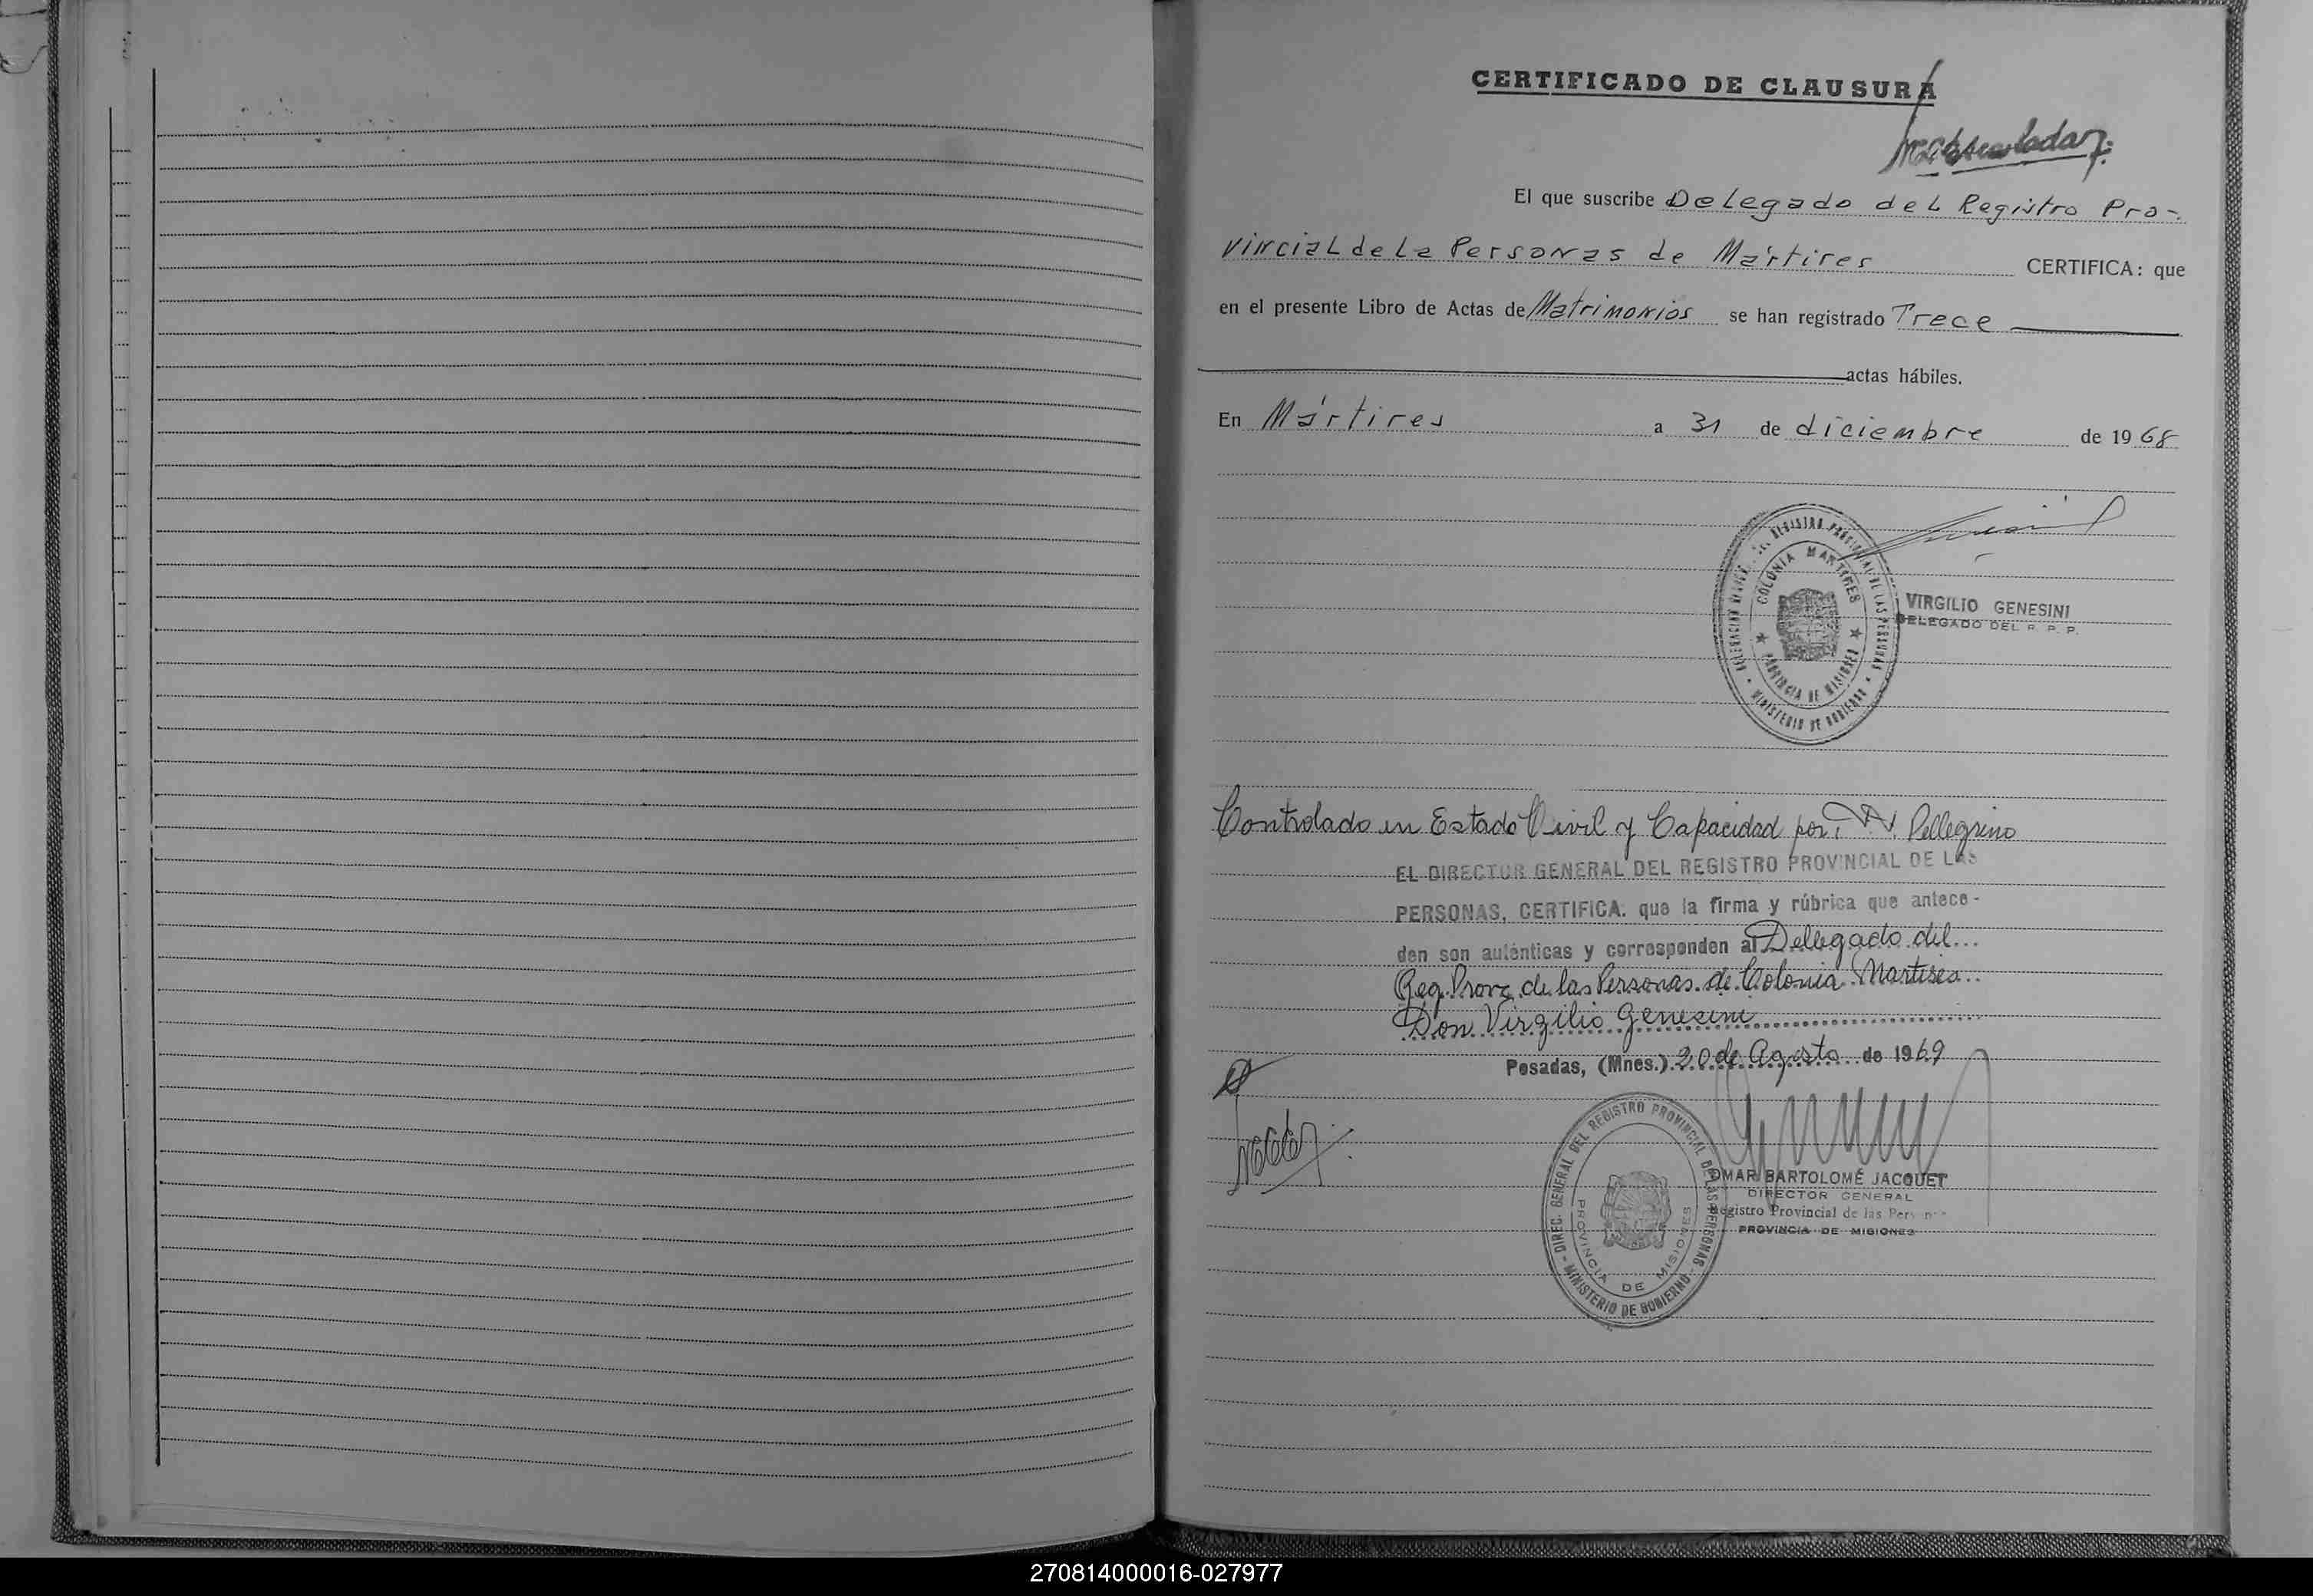 CERTIFICADO DE CLAUSURA
El que suscribe Delegado del Registro Pro-
vincial de la Personas de Mártires CERTIFICA: que
en el presente Libro de Actas de Matrimonios se han registrado Trece
actas hábiles.
En Mártires a 31 de diciembre de 1968
REGISTRO PROVINCIAL DE LAS PERSONAS
MINISTERIO DE GOBIERNO
COLONIA MARTIRES
PROVINCIA DE MISIONES
VIRGILIO GENESINI
DELEGADO DEL R. P. P.
Controlado en Estado Civil y Capacidad por: Pellegrino
EL DIRECTOR GENERAL DEL REGISTRO PROVINCIAL DE LAS
PERSONAS, CERTIFICA: que la firma y rúbrica que antece-
den son auténticas y corresponden al Dellegado del...
Reg. Prov. de las Personas de Colonia Martires..
Don Virgilio Genesini
Posadas, (Mnes.) 20 de Agosto de 1969
DIREC. GENERAL DEL REGISTRO PROVINCIAL DE LAS PERSONAS
- MINISTERIO DE GOBIERNO -
PROVINCIA DE MISIONES
OMAR BARTOLOMÉ JACQUET
DIRECTOR GENERAL
Registro Provincial de las Personas
PROVINCIA DE MISIONES
270814000016-027977